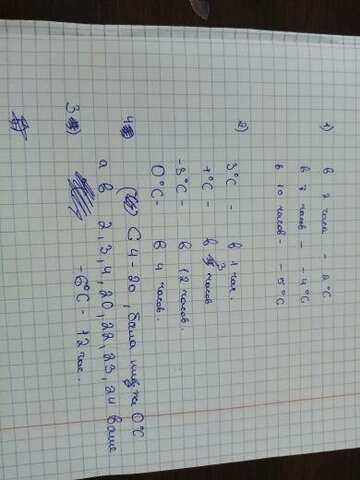 1) в 2 часа - 2°C
в 7 часов - - 4°C
в 10 часов - - 5°C
2) 3°C - в 1 час.
+°C - в 3 часов
-3°C - в 12 часов.
0°C - в 4 часов.
4) С 4-20, была ниже 0°C
а в 2, 3, 4, 20, 22, 23, 24 выше
3) -6°C - 12 час.